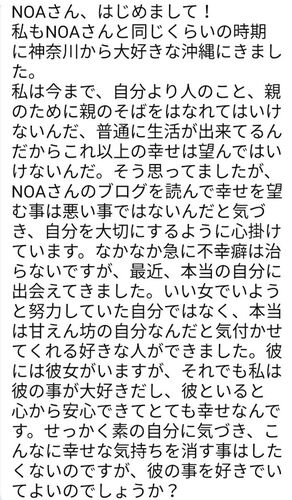 NOAさん、はじめまして！
私もNOAさんと同じくらいの時期
に神奈川から大好きな沖縄にきまし
た。
私は今まで、自分より人のこと、親
のために親のそばをはなれてはいけ
ないんだ、普通に生活が出来てるん
だからこれ以上の幸せは望んではい
けないんだ。そう思ってましたが、
NOAさんのブログを読んで幸せを望
む事は悪い事ではないんだと気づ
き、自分を大切にするように心掛け
ています。なかなか急に不幸癖は治
らないですが、最近、本当の自分に
出会えてきました。いい女でいよう
と努力していた自分ではなく、本当
は甘えん坊の自分なんだと気付かせ
てくれる好きな人ができました。彼
には彼女がいますが、それでも私は
彼の事が大好きだし、彼といると
心から安心できてとても幸せなんで
す。せっかく素の自分に気づき、こ
んなに幸せな気持ちを消す事はした
くないのですが、彼の事を好きでい
てよいのでしょうか？